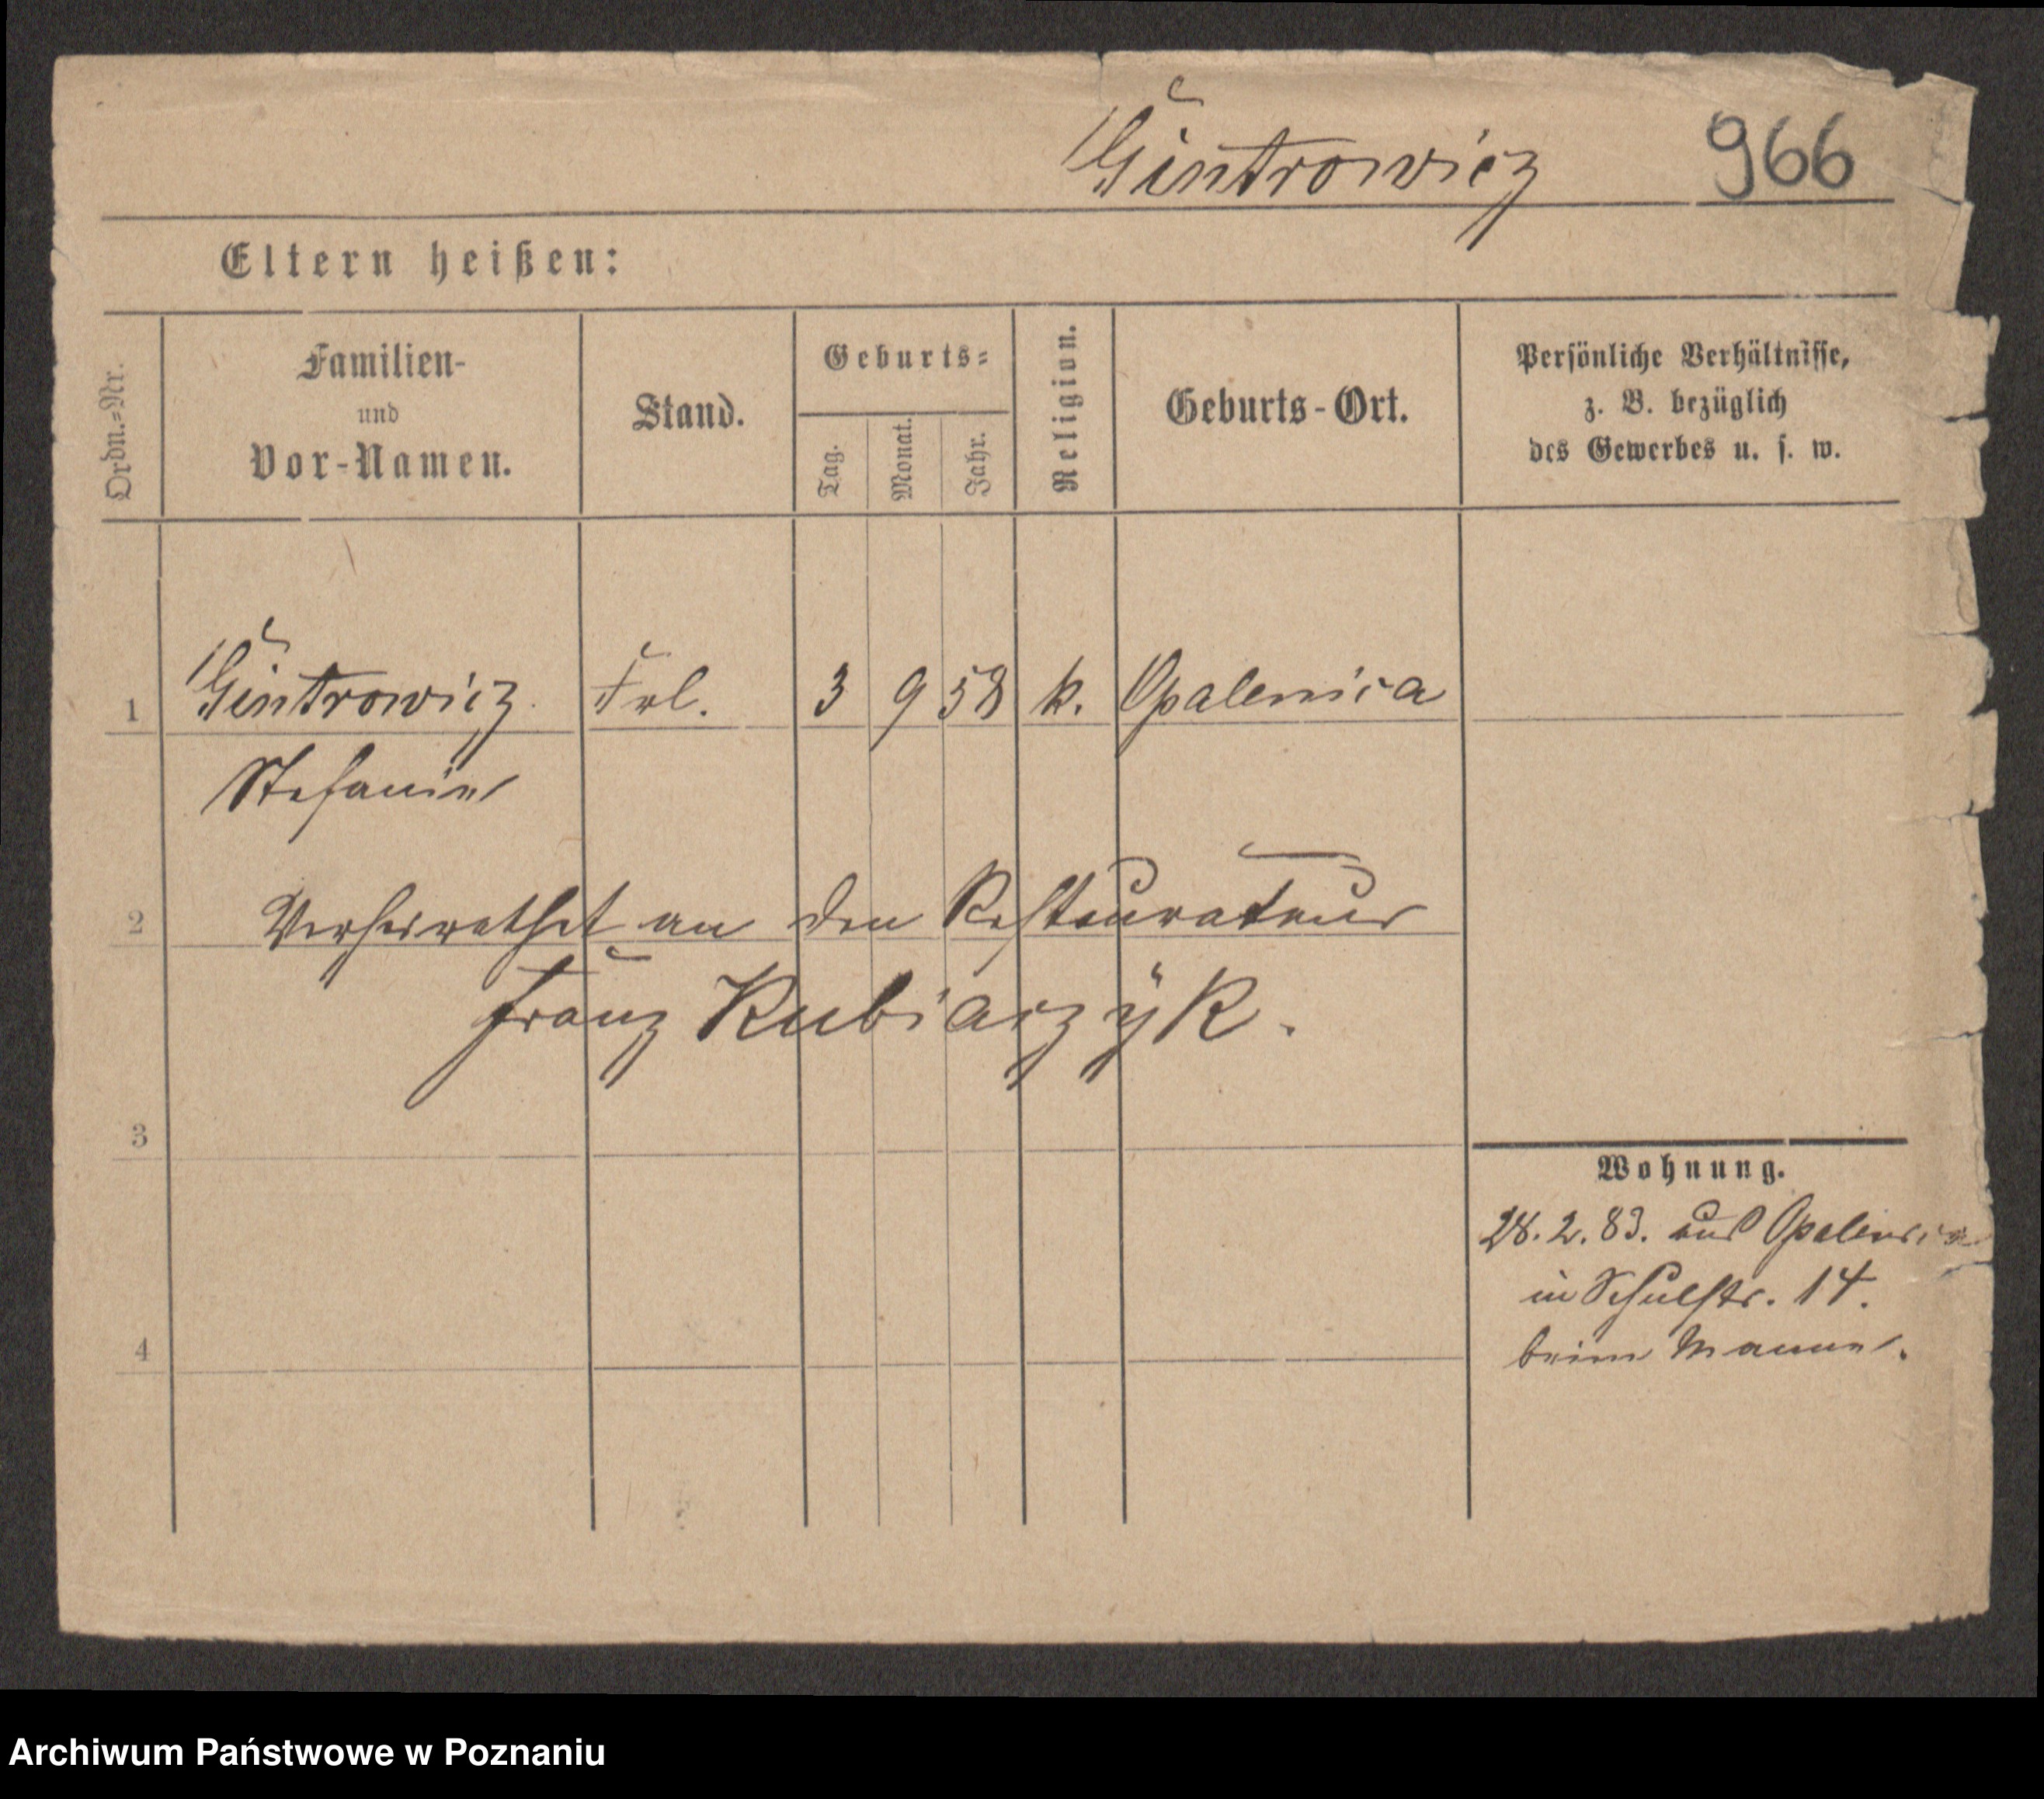 Gintrowicz 966
Eltern heißen:
Ordn.-Nr.
Familien-
und
Vor-Namen.
Stand.
Geburts-
Tag.
Monat.
Jahr.
Religion.
Geburts-Ort.
Persönliche Verhältnisse,
z. B. bezüglich
des Gewerbes u. s. w.
1 Gintrowicz Frl. 3 9 58 k. Opalenica
Stefanie
2 Verheirathet an den Restaurateur
Franz Kubiaczÿk.
3
Wohnung.
28. 2. 83. aus Opalenica
in Schulstr. 14.
4 beim Manne.
Archiwum Państwowe w Poznaniu